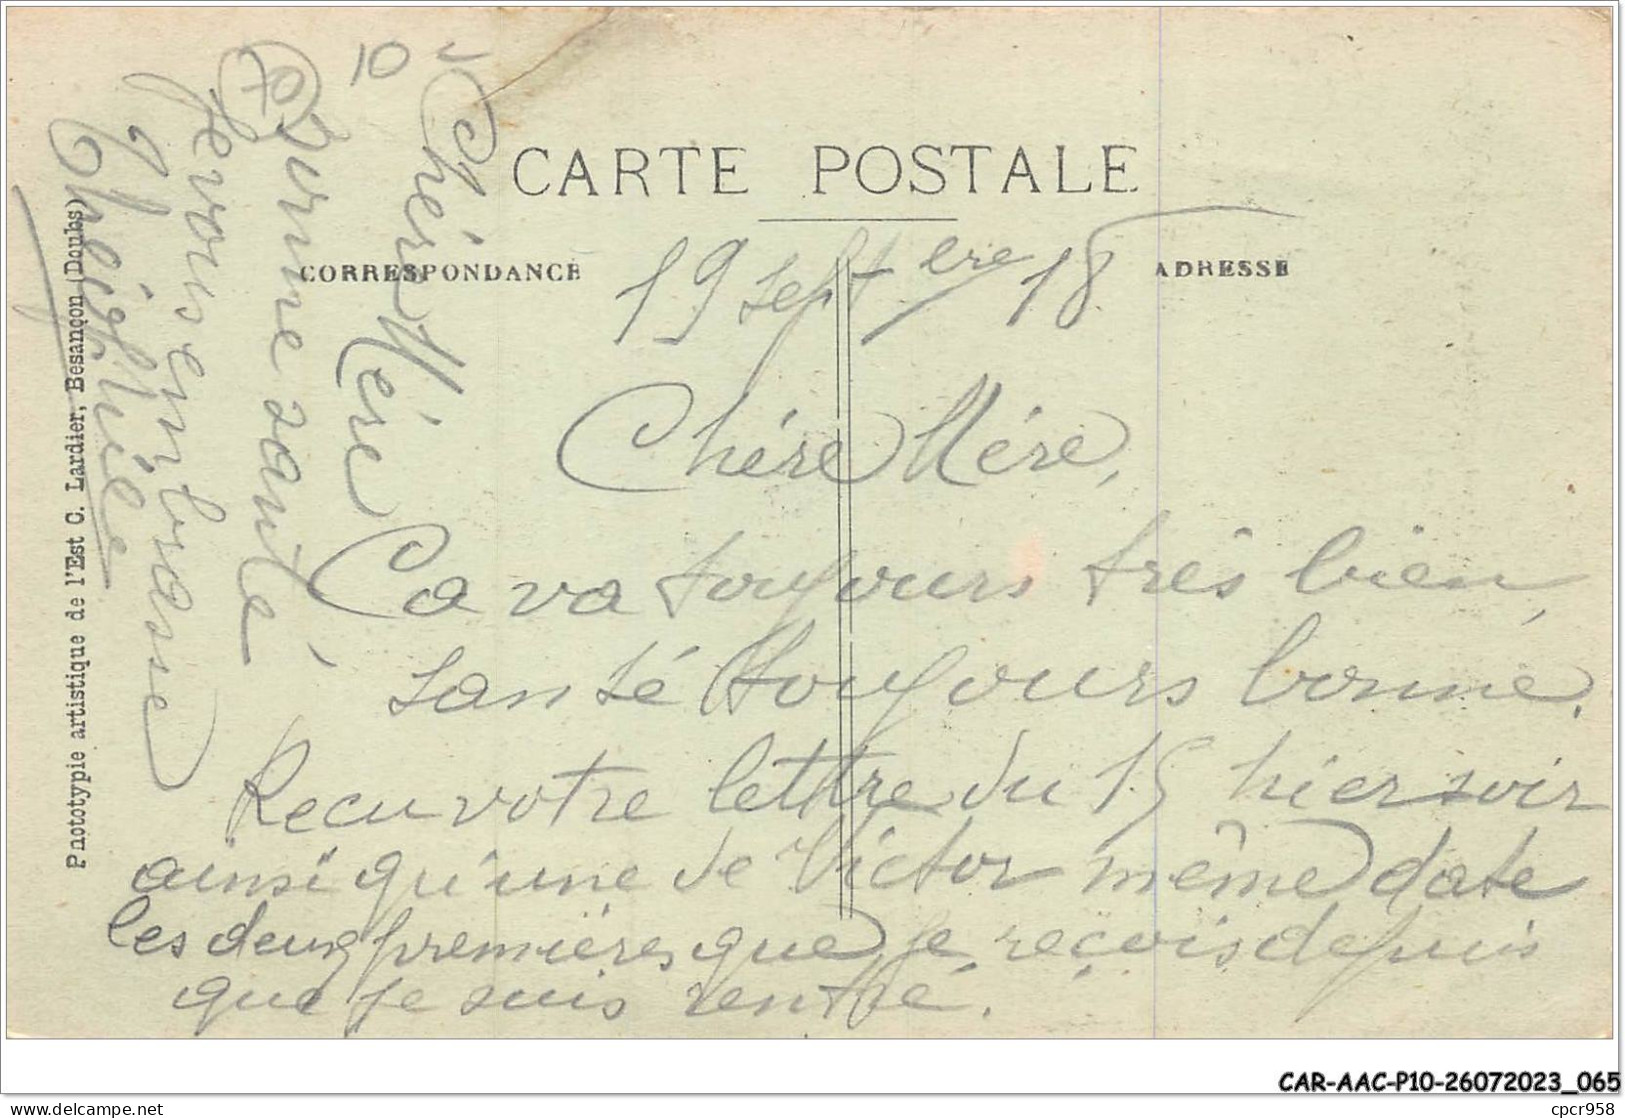 CARTE POSTALE
CORRESPONDANCE
ADRESSE
19 sept ere 18
Chére Mére,
Ca va toujours très bien,
santé toujours bonne.
Recu votre lettre du 15 hier soir
ainsi qu'une de Victor même date
les deux premières que je reçois depuis
que je suis rentré.
10
Chére Mére
bonne santé
Je vous embrasse
Théophile
Phototypie artistique de l'Est C. Lardier, Besançon (Doubs)
CAR-AAC-P10-26072023_065
delcampe.net
cpcr958